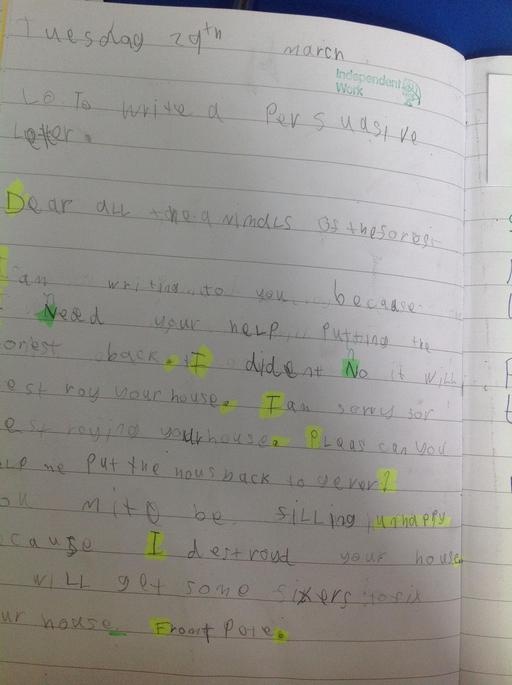 Tuesday 29th march
Independent
Work
LO To write a Persuasive
Letter.
Dear all the animals
I am writing to you because
Need your help putting the
back. I dident No it will
est roy your house. I am sorry for
est roying your house. Pleas can you
lp me put the hous back to gever?
mito be filling unhappy
cause I destroyd your house
will get some fixers to fix
ur house. From Pote.